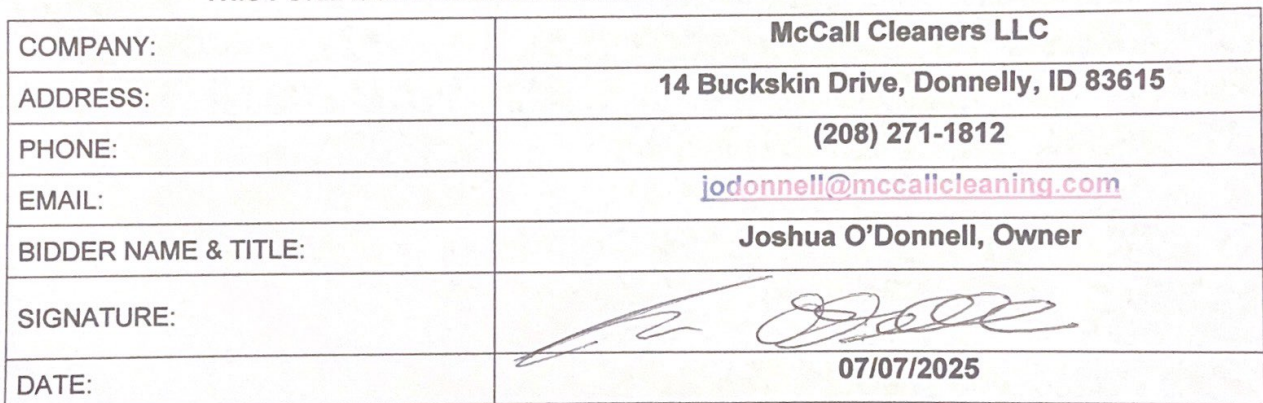 COMPANY: McCall Cleaners LLC
ADDRESS: 14 Buckskin Drive, Donnelly, ID 83615
PHONE: (208) 271-1812
EMAIL: jodonnell@mccallcleaning.com
BIDDER NAME & TITLE: Joshua O'Donnell, Owner
SIGNATURE:
DATE: 07/07/2025